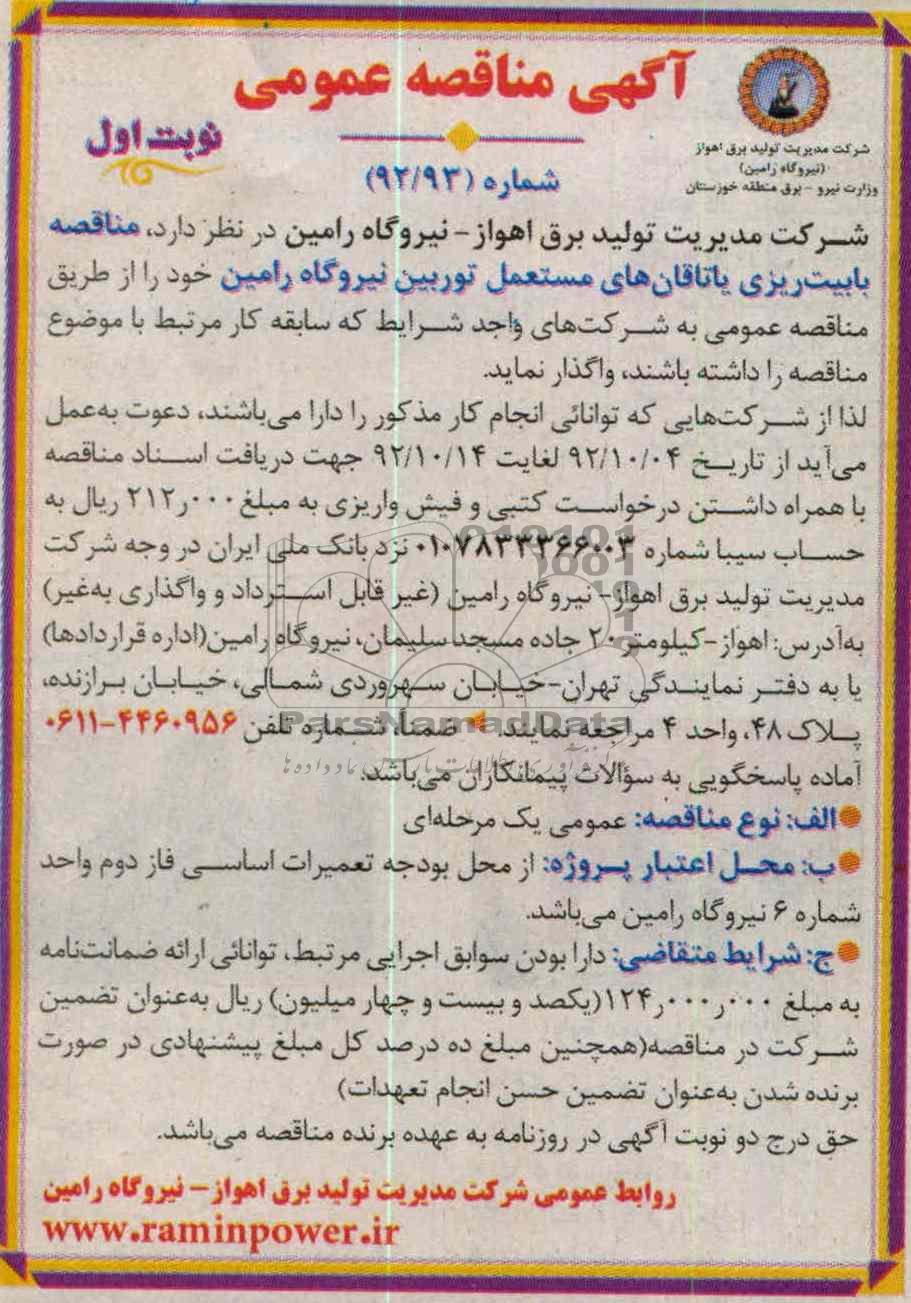 آگهی مناقصه عمومی
نوبت اول
شماره (۹۲/۹۳)
شرکت مدیریت تولید برق اهواز
(نیروگاه رامین)
وزارت نیرو - برق منطقه خوزستان
شرکت مدیریت تولید برق اهواز - نیروگاه رامین در نظر دارد، مناقصه
بابیت‌ریزی یاتاقان‌های مستعمل توربین نیروگاه رامین خود را از طریق
مناقصه عمومی به شرکت‌های واجد شرایط که سابقه کار مرتبط با موضوع
مناقصه را داشته باشند، واگذار نماید.
لذا از شرکت‌هایی که توانائی انجام کار مذکور را دارا می‌باشند، دعوت به‌عمل
می‌آید از تاریخ ۹۲/۱۰/۰۴ لغایت ۹۲/۱۰/۱۴ جهت دریافت اسناد مناقصه
با همراه داشتن درخواست کتبی و فیش واریزی به مبلغ ۲۱۲٫۰۰۰ ریال به
حساب سیبا شماره ۰۱۰۷۸۳۳۳۶۶۰۰۳ نزد بانک ملی ایران در وجه شرکت
مدیریت تولید برق اهواز- نیروگاه رامین (غیر قابل استرداد و واگذاری به‌غیر)
به‌آدرس: اهواز-کیلومتر ۲۰ جاده مسجدسلیمان، نیروگاه رامین(اداره قراردادها)
یا به دفتر نمایندگی تهران-خیابان سهروردی شمالی، خیابان برازنده،
پلاک ۴۸، واحد ۴ مراجعه نمایند. ضمناً، شماره تلفن ۰۶۱۱-۴۴۶۰۹۵۶
آماده پاسخگویی به سؤالات پیمانکاران می‌باشد.
الف: نوع مناقصه: عمومی یک مرحله‌ای
ب: محل اعتبار پروژه: از محل بودجه تعمیرات اساسی فاز دوم واحد
شماره ۶ نیروگاه رامین می‌باشد.
ج: شرایط متقاضی: دارا بودن سوابق اجرایی مرتبط، توانائی ارائه ضمانت‌نامه
به مبلغ ۱۲۴٫۰۰۰٫۰۰۰ (یکصد و بیست و چهار میلیون) ریال به‌عنوان تضمین
شرکت در مناقصه(همچنین مبلغ ده درصد کل مبلغ پیشنهادی در صورت
برنده شدن به‌عنوان تضمین حسن انجام تعهدات)
حق درج دو نوبت آگهی در روزنامه به عهده برنده مناقصه می‌باشد.
روابط عمومی شرکت مدیریت تولید برق اهواز - نیروگاه رامین
www.raminpower.ir
ParsNamadData